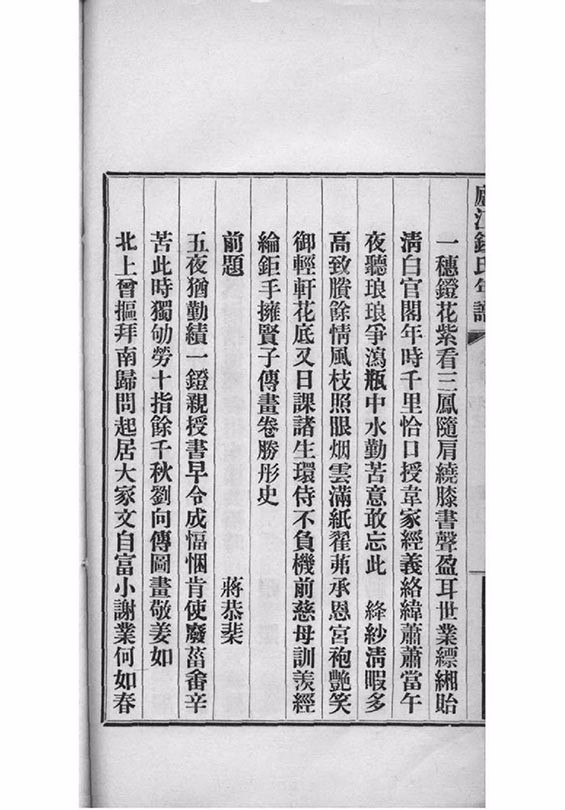 廬江錢氏年譜
一穗鐙花紫看三鳳隨肩繞膝書聲盈耳世業縹緗貽
清白官閣年時千里恰口授韋家經義絡緯蕭蕭當午
夜聽琅琅爭瀉瓶中水勤苦意敢忘此 絳紗清暇多
高致賸餘情風枝照眼烟雲滿紙翟茀承恩宮袍艷笑
御輕軒花底又日課諸生環侍不負機前慈母訓羨經
綸鉅手擁賢子傳畫卷勝彤史
前題 蔣恭棐
五夜猶勤績一鐙親授書早令成愊悃肯使廢菑畬辛
苦此時獨劬勞十指餘千秋劉向傳圖畫敬姜如
北上曾摳拜南歸問起居大家文自富小謝業何如春